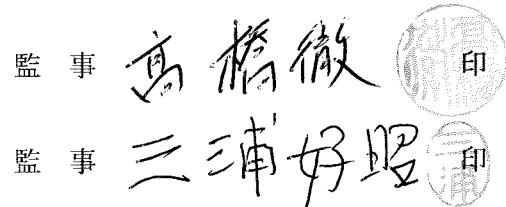 監 事 高橋徹 印
監 事 三浦好昭 印